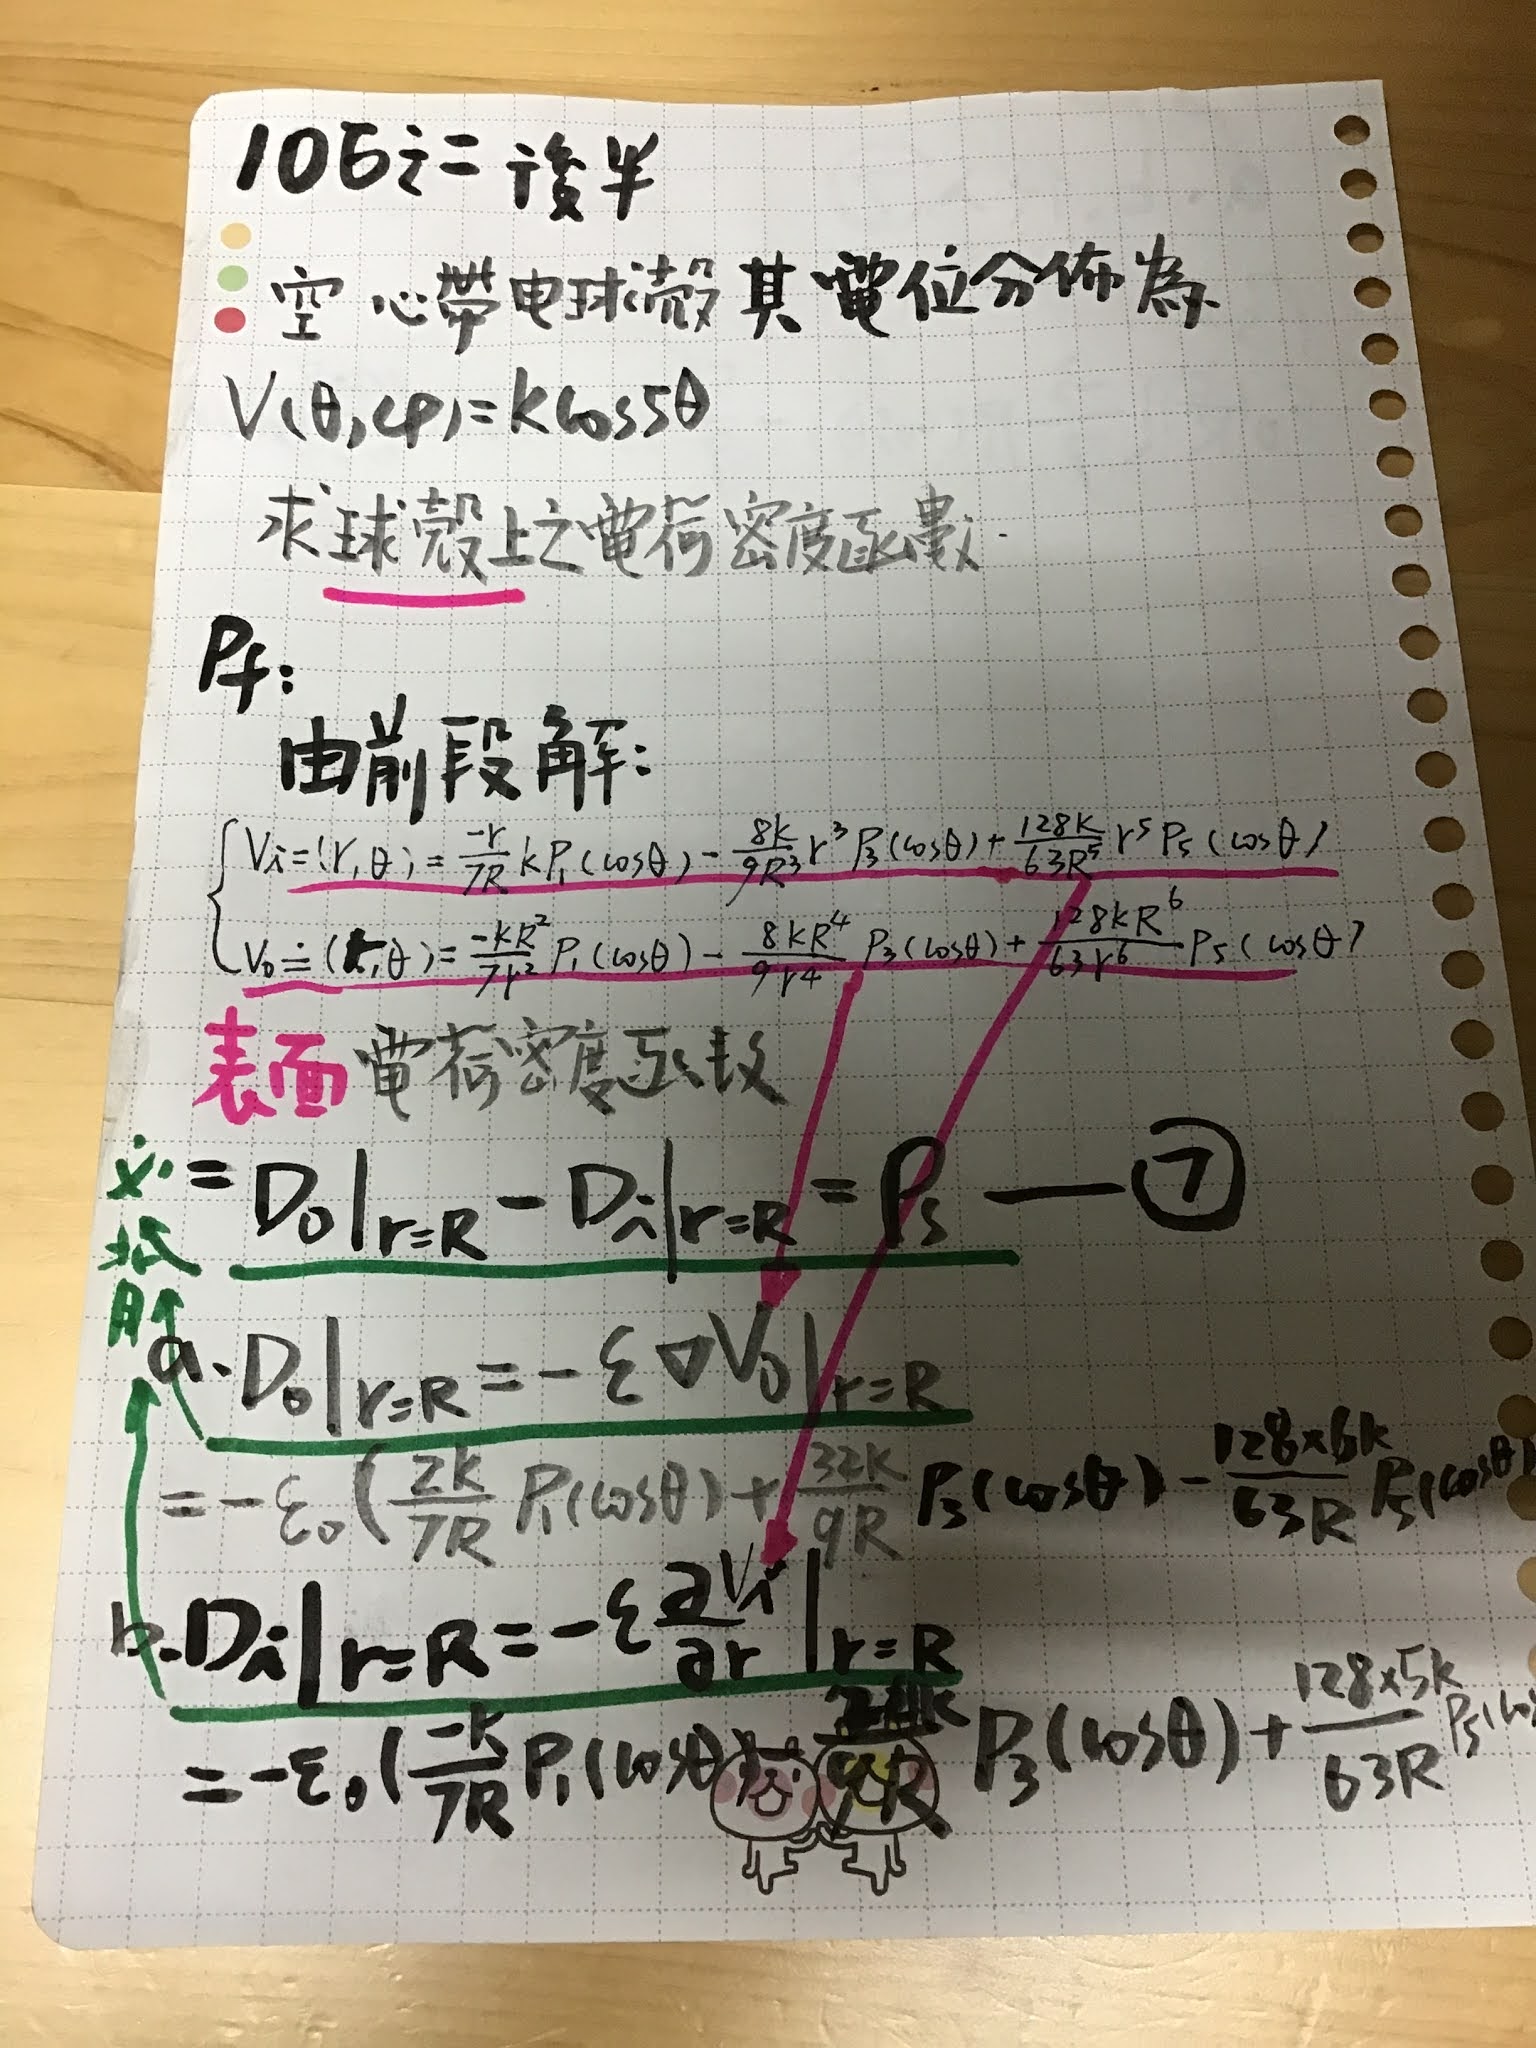 105之二 後半
空心帶电球殼其電位分佈為
V(θ,φ)=kcos5θ
求球殼上之電荷密度函數
Pf:
由前段解:
Vi=(r,θ)=-r/7R kP₁(cosθ)-8k/9R³ r³P₃(cosθ)+128k/63R⁵ r⁵P₅(cosθ)
Vo=(r,θ)=-kR²/7r² P₁(cosθ)-8kR⁴/9r⁴ P₃(cosθ)+128kR⁶/63r⁶ P₅(cosθ)
表面電荷密度函數
=Do|r=R-Di|r=R=ρs—⑦
a.Do|r=R=-ε∇Vo|r=R
=-ε₀(2k/7R P₁(cosθ)+32k/9R P₃(cosθ)-128×6k/63R P₅(cosθ)
b.Di|r=R=-ε∂Vi/∂r|r=R
=-ε₀(-k/7R P₁(cosθ)-24k/9R P₃(cosθ)+128×5k/63R P₅(cos